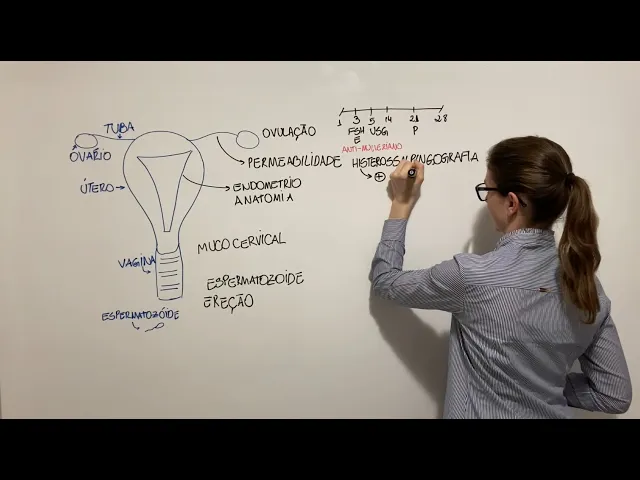 TUBA
OVÁRIO
ÚTERO
VAGINA
ESPERMATOZÓIDE
OVULAÇÃO
PERMEABILIDADE
ENDOMETRIO
ANATOMIA
MUCO CERVICAL
ESPERMATOZOIDE
EREÇÃO
1 3 5 14 21 28
FSH USG P
E
ANTI-MULLERIANO
+